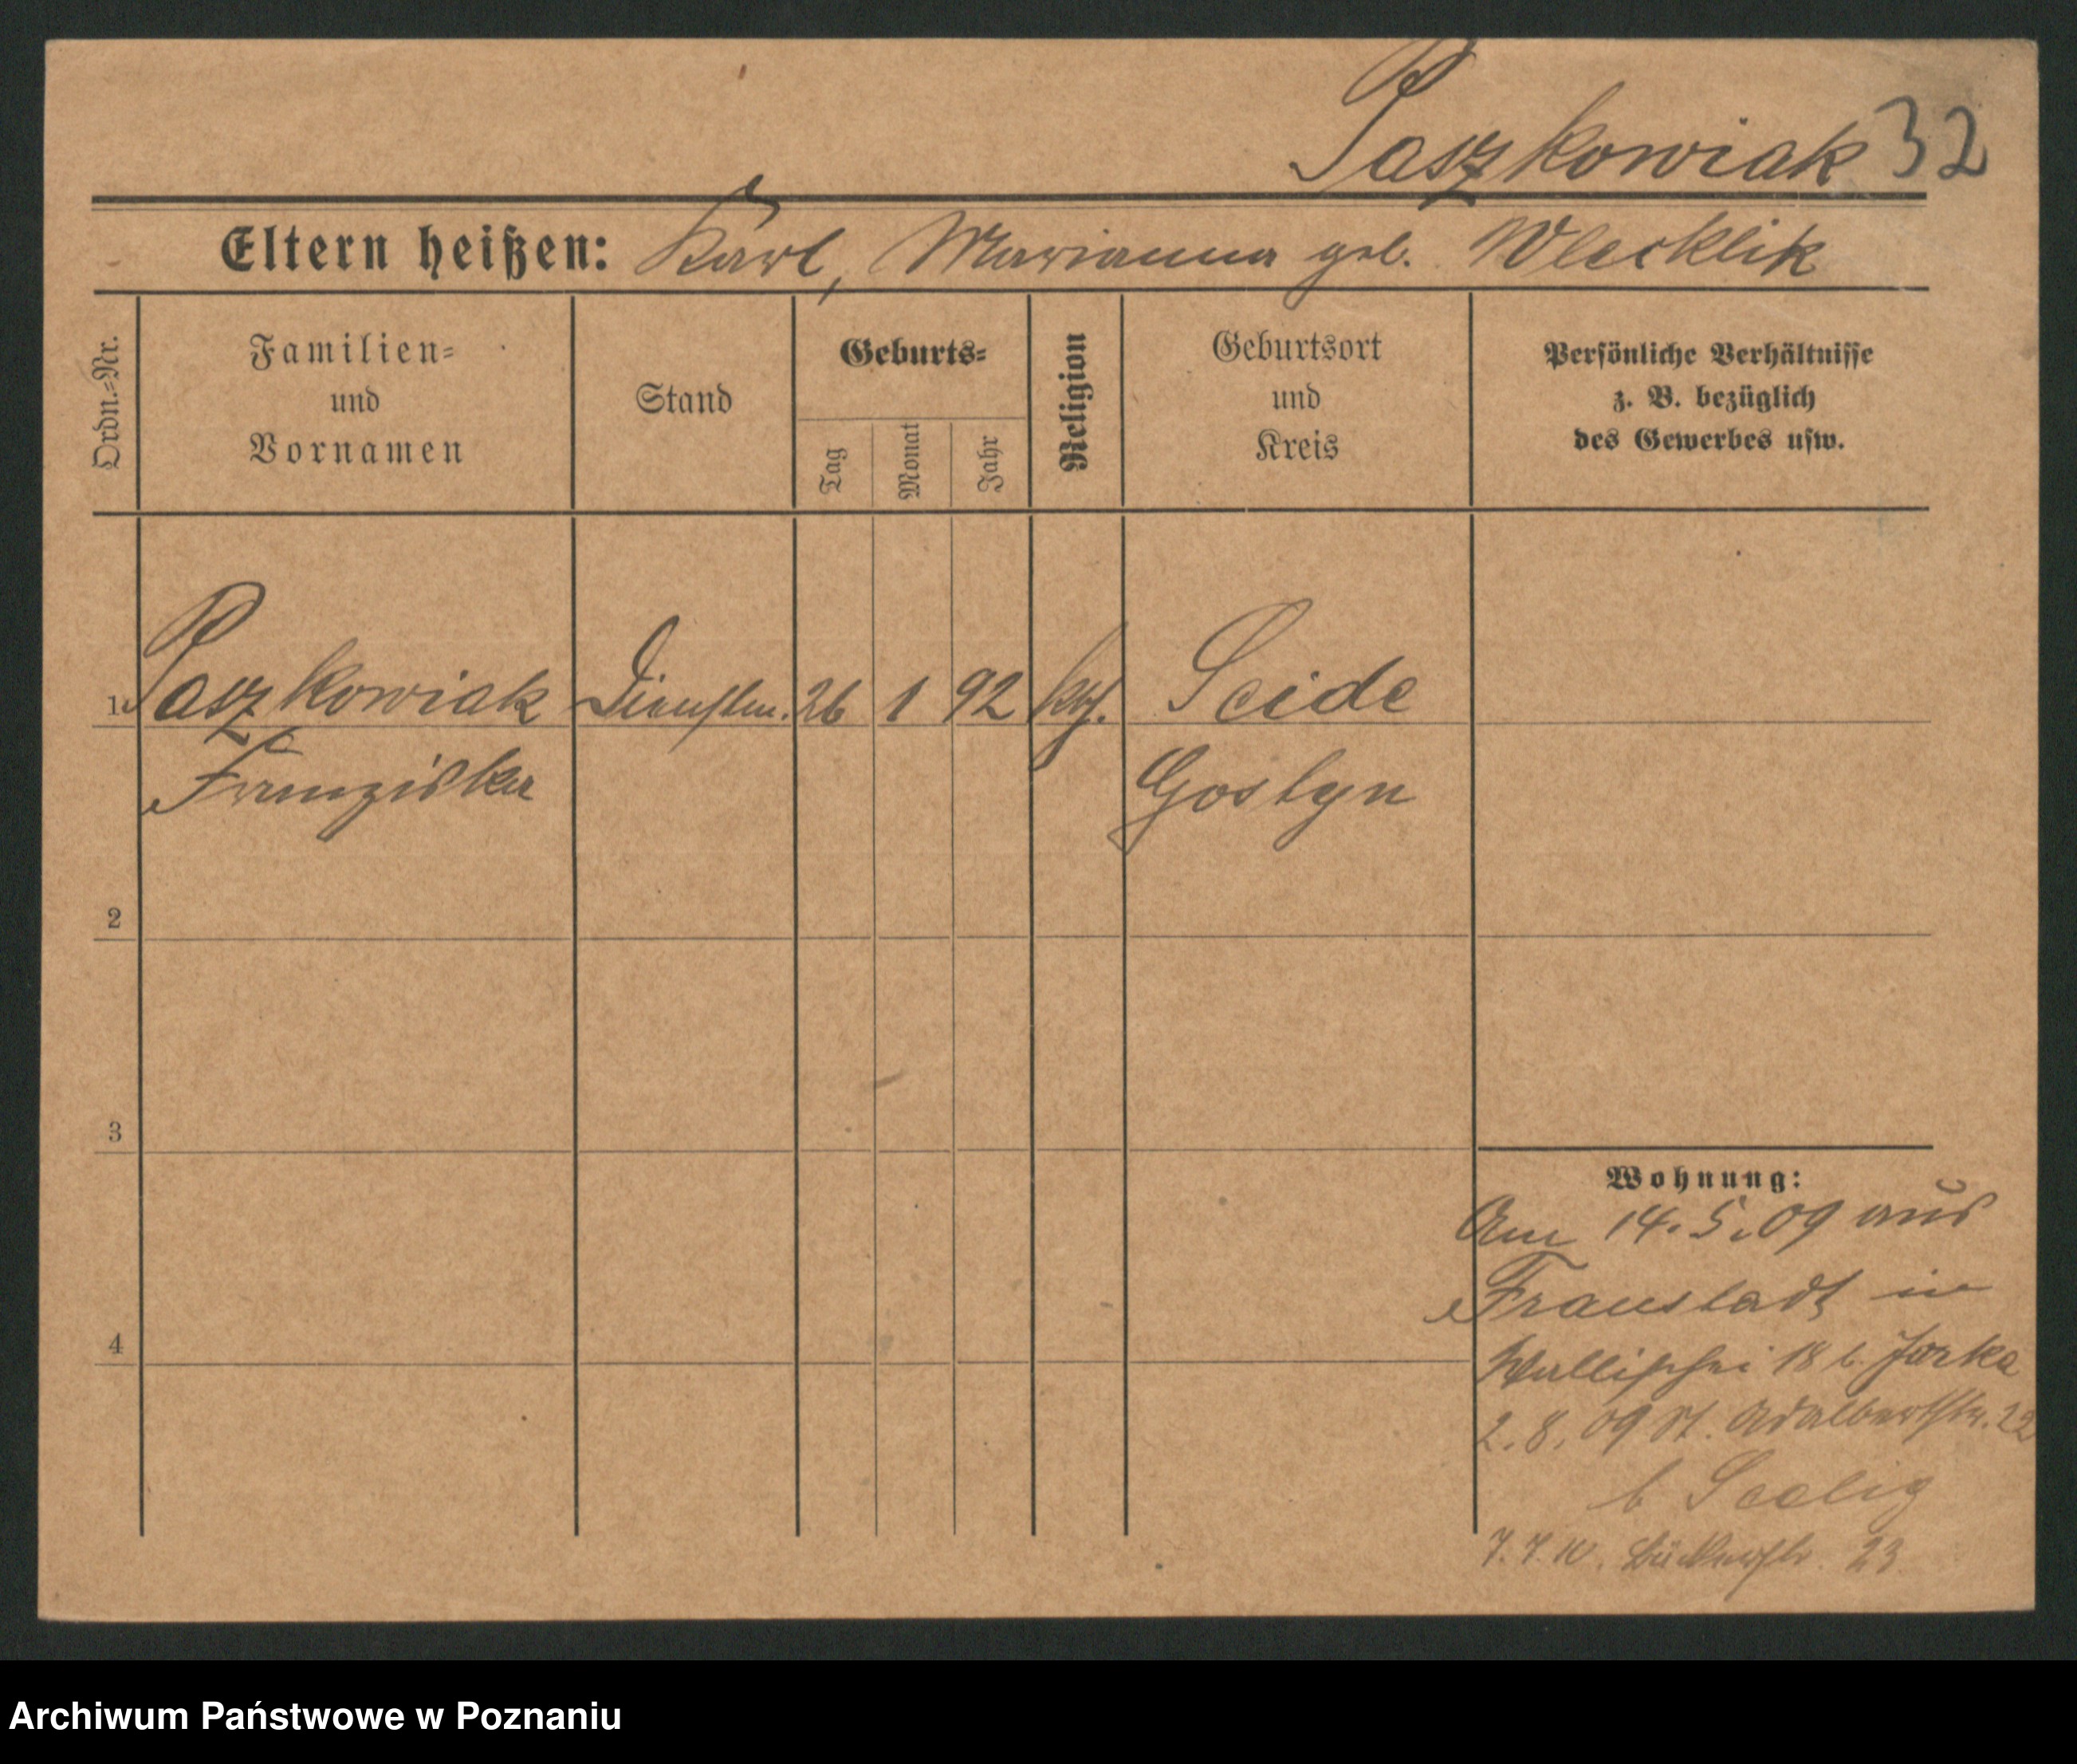 Paszkowiak 32
Eltern heißen: Karl, Marianna geb. Wlecklik
Ordn.=Nr.
Familien=
und
Vornamen
Stand
Geburts=
Tag
Monat
Jahr
Religion
Geburtsort
und
Kreis
Persönliche Verhältnisse
z. B. bezüglich
des Gewerbes usw.
1 Paszkowiak Dienstm. 26 1 92 kth. Seide
Franziska Gostyn
2
3
4
Wohnung:
Am 14.5.09 aus
Fraustadt in
Wallischei 18 b. Jarka
2.8.09 St. Adalbertstr. 22
b Seelig
7.7.10. 23
Archiwum Państwowe w Poznaniu